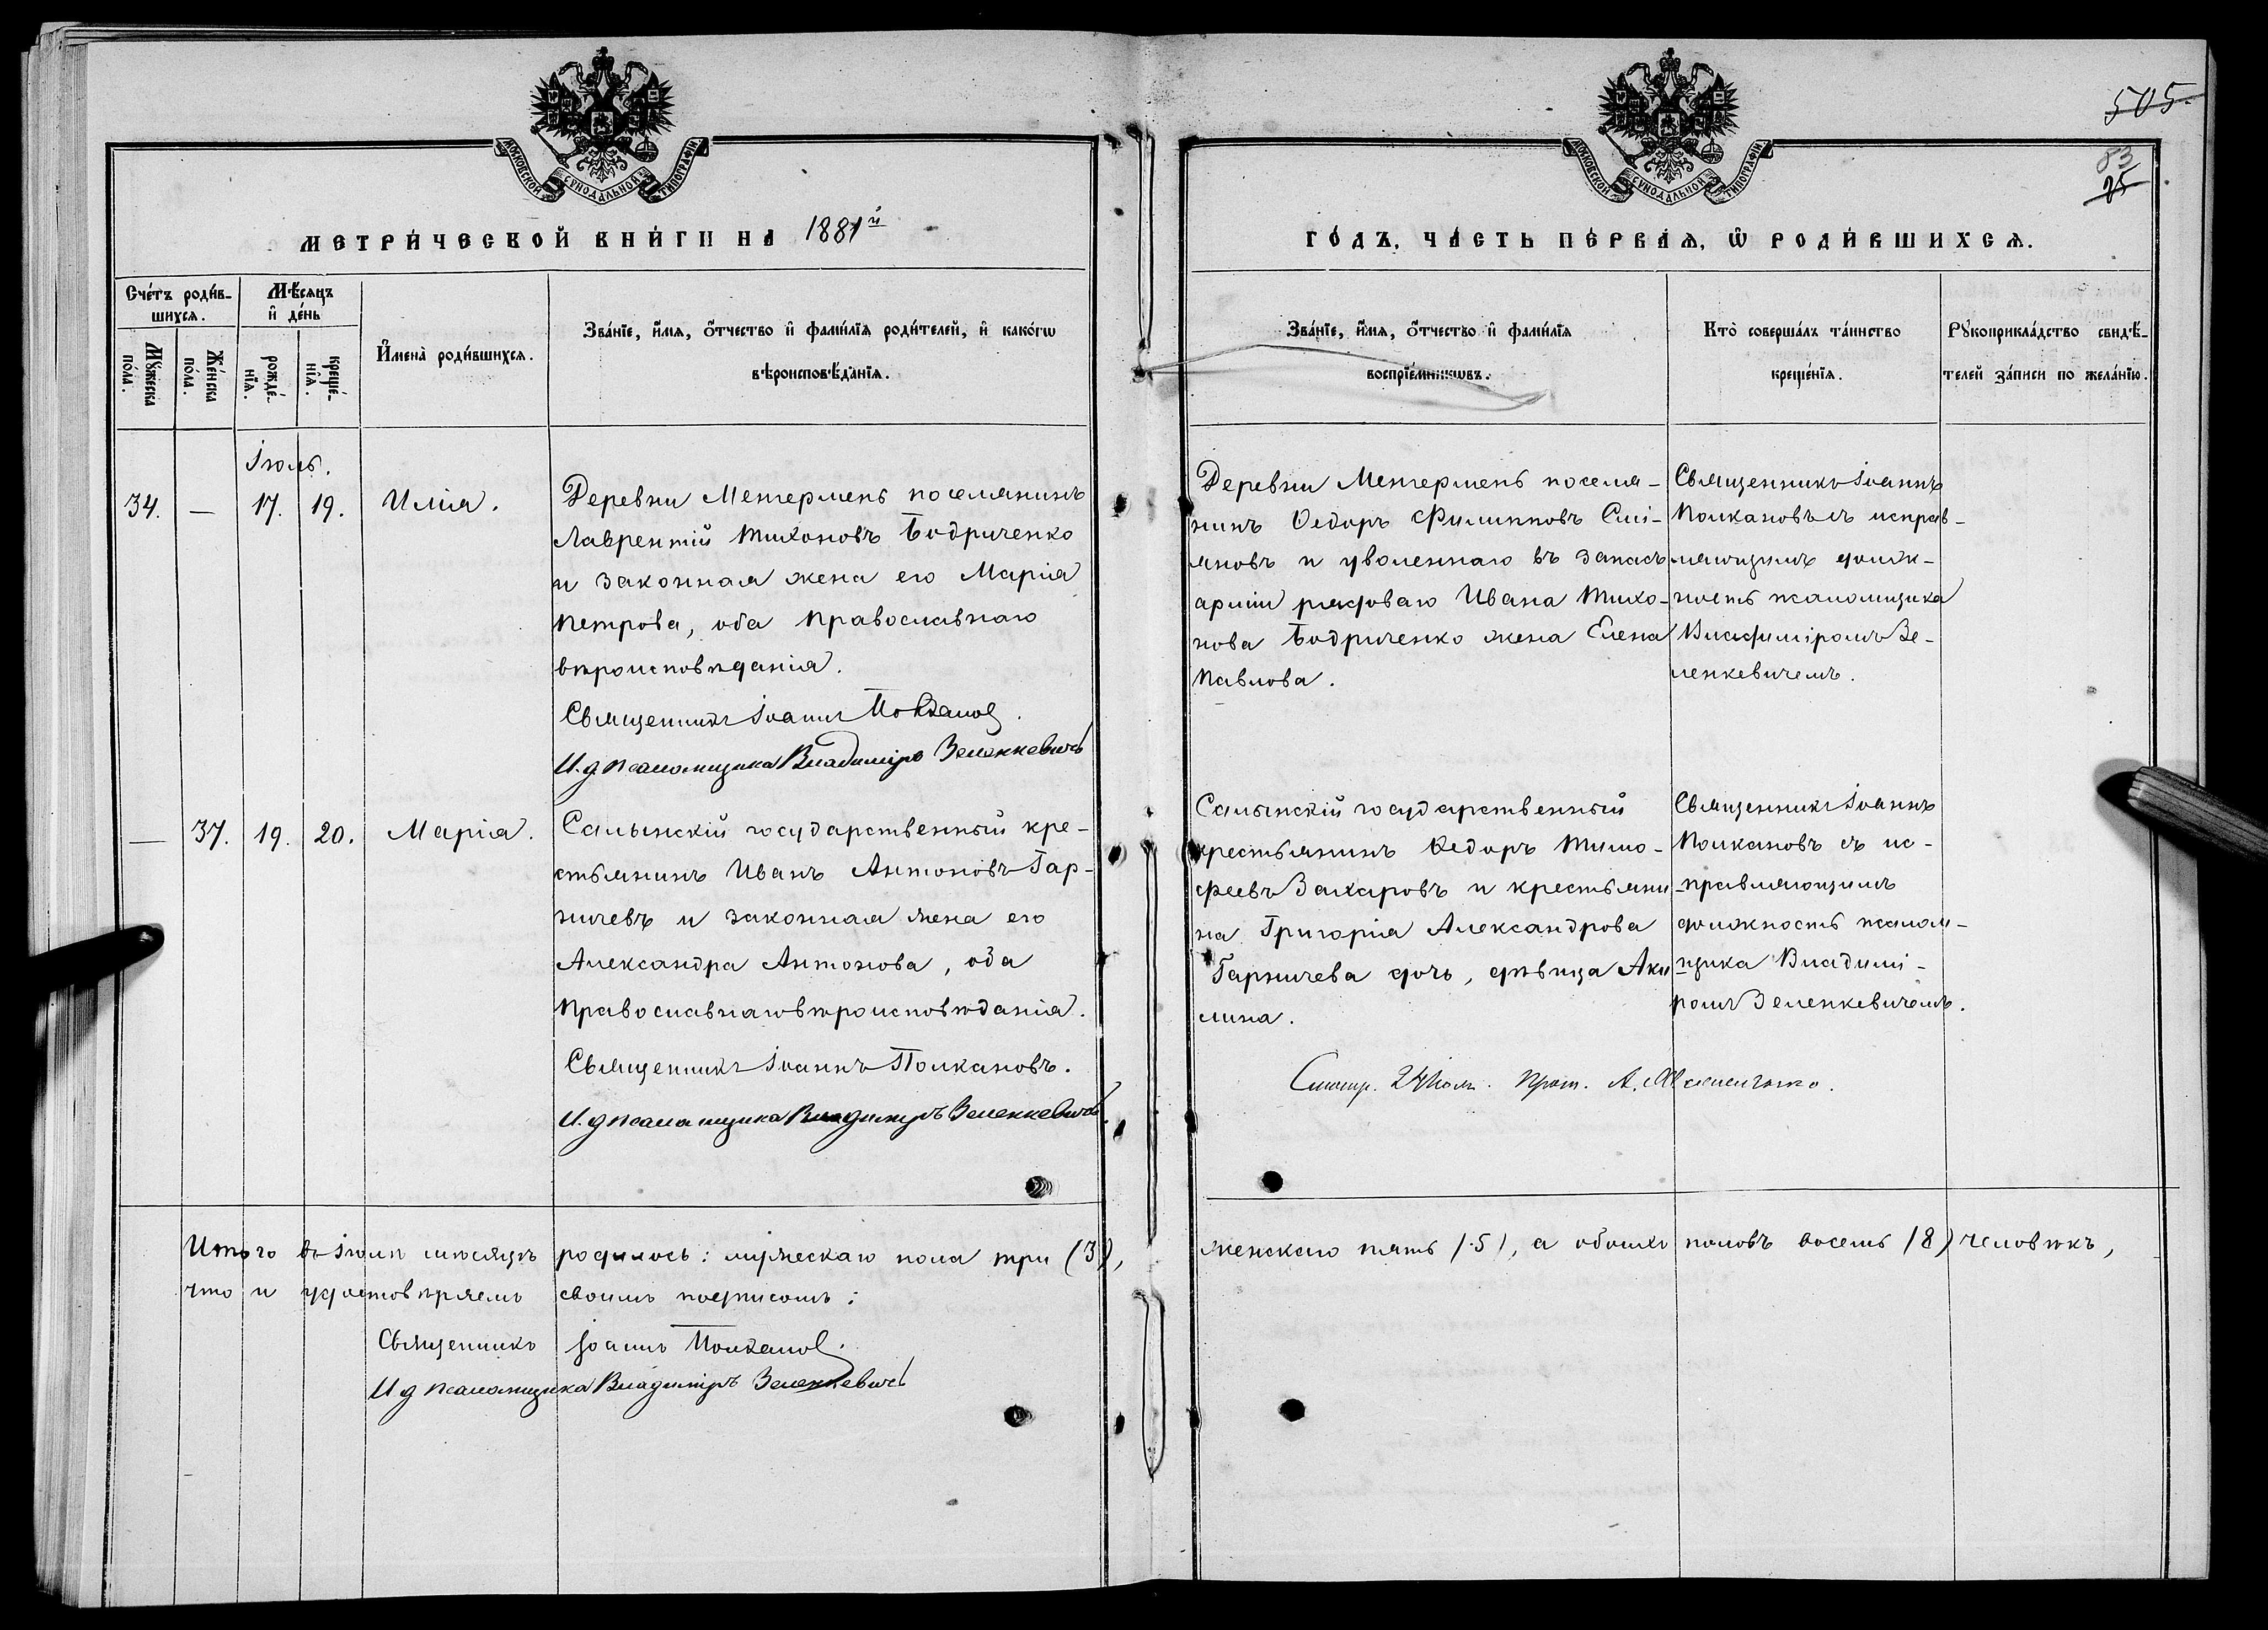 505.
83
25
МОСКОВСКОЙ СѴНОДАЛЬНОЙ ТИПОГРАФІИ
МОСКОВСКОЙ СѴНОДАЛЬНОЙ ТИПОГРАФІИ
МЕТРИ́ЧЕСКОЙ КНИ́ГИ НА 1881й
ГО́ДЪ, ЧА́СТЬ ПЕ́РВАѦ, Ѡ҆ РОДИ́ВШИХСѦ.
Сче́тъ роди́в-
шихсѧ.
Мꙋ́жеска
по́ла.
Же́нска
по́ла.
Мѣ́сѧцъ
и҆ де́нь
рожде́-
нїѧ.
креще́-
нїѧ.
И҆мена̀ роди́вшихсѧ.
Зва́нїе, и҆́мѧ, ѻ҆́тчество и҆ фами́лїѧ роди́телей, и҆ како́гѡ
вѣроисповѣ́данїѧ.
Зва́нїе, и҆́мѧ, ѻ҆́тчество и҆ фами́лїѧ
воспрїе́мникѡвъ.
Кто̀ соверша́лъ та́инство
креще́нїѧ.
Рꙋкоприкла́дство свидѣ́-
телей за́писи по жела́нїю.
Іюль.
34. — 17. 19. Илія.
Деревни Менгермень поселянинъ
Лаврентій Тихоновъ Бодриченко
и законная жена его Марія
Петрова, оба православнаго
вѣроисповѣданія.
Священникъ Іоаннъ Полкановъ.
И. д псаломщика Владиміръ Зеленкевичъ
Деревни Менгермень поселя-
нинъ Ѳедоръ Филипповъ Сми-
яновъ и уволеннаго въ запасъ
арміи рядоваго Ивана Тихо-
нова Бодриченко жена Елена
Павлова.
Священникъ Іоаннъ
Полкановъ съ исправ-
ляющимъ долж-
ность псаломщика
Владиміромъ Зе-
ленкевичемъ.
— 37. 19. 20. Марія.
Салынскій государственный кре-
стьянинъ Иванъ Антоновъ Гар-
ничевъ и законная жена его
Александра Антонова, оба
православнаго вѣроисповѣданія.
Священникъ Іоаннъ Полкановъ.
И. д псаломщика Владиміръ Зеленкевичъ.
Салынскій государственный
крестьянинъ Ѳедоръ Тимо-
феевъ Захаровъ и крестьяни-
на Григорія Александрова
Гарничева дочь, дѣвица Аки-
лина.
Священникъ Іоаннъ
Полкановъ съ ис-
правляющимъ
должность псалом-
щика Владимі-
ромъ Зеленкевичемъ.
Смотр. 24 Прот. А.
Итого въ Іюлѣ мѣсяцѣ родилось: мужескаго пола три (3), женскаго пять (5), а обоихъ половъ восемь (8) человѣкъ,
что и удостовѣряемъ своимъ подписомъ:
Священникъ Іоаннъ Полкановъ.
И д псаломщика Владиміръ Зеленкевичъ